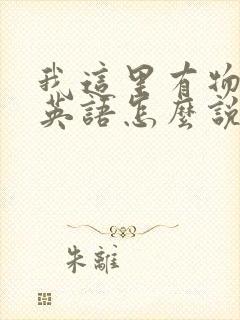 我這里有物
英語怎麼說
朱離